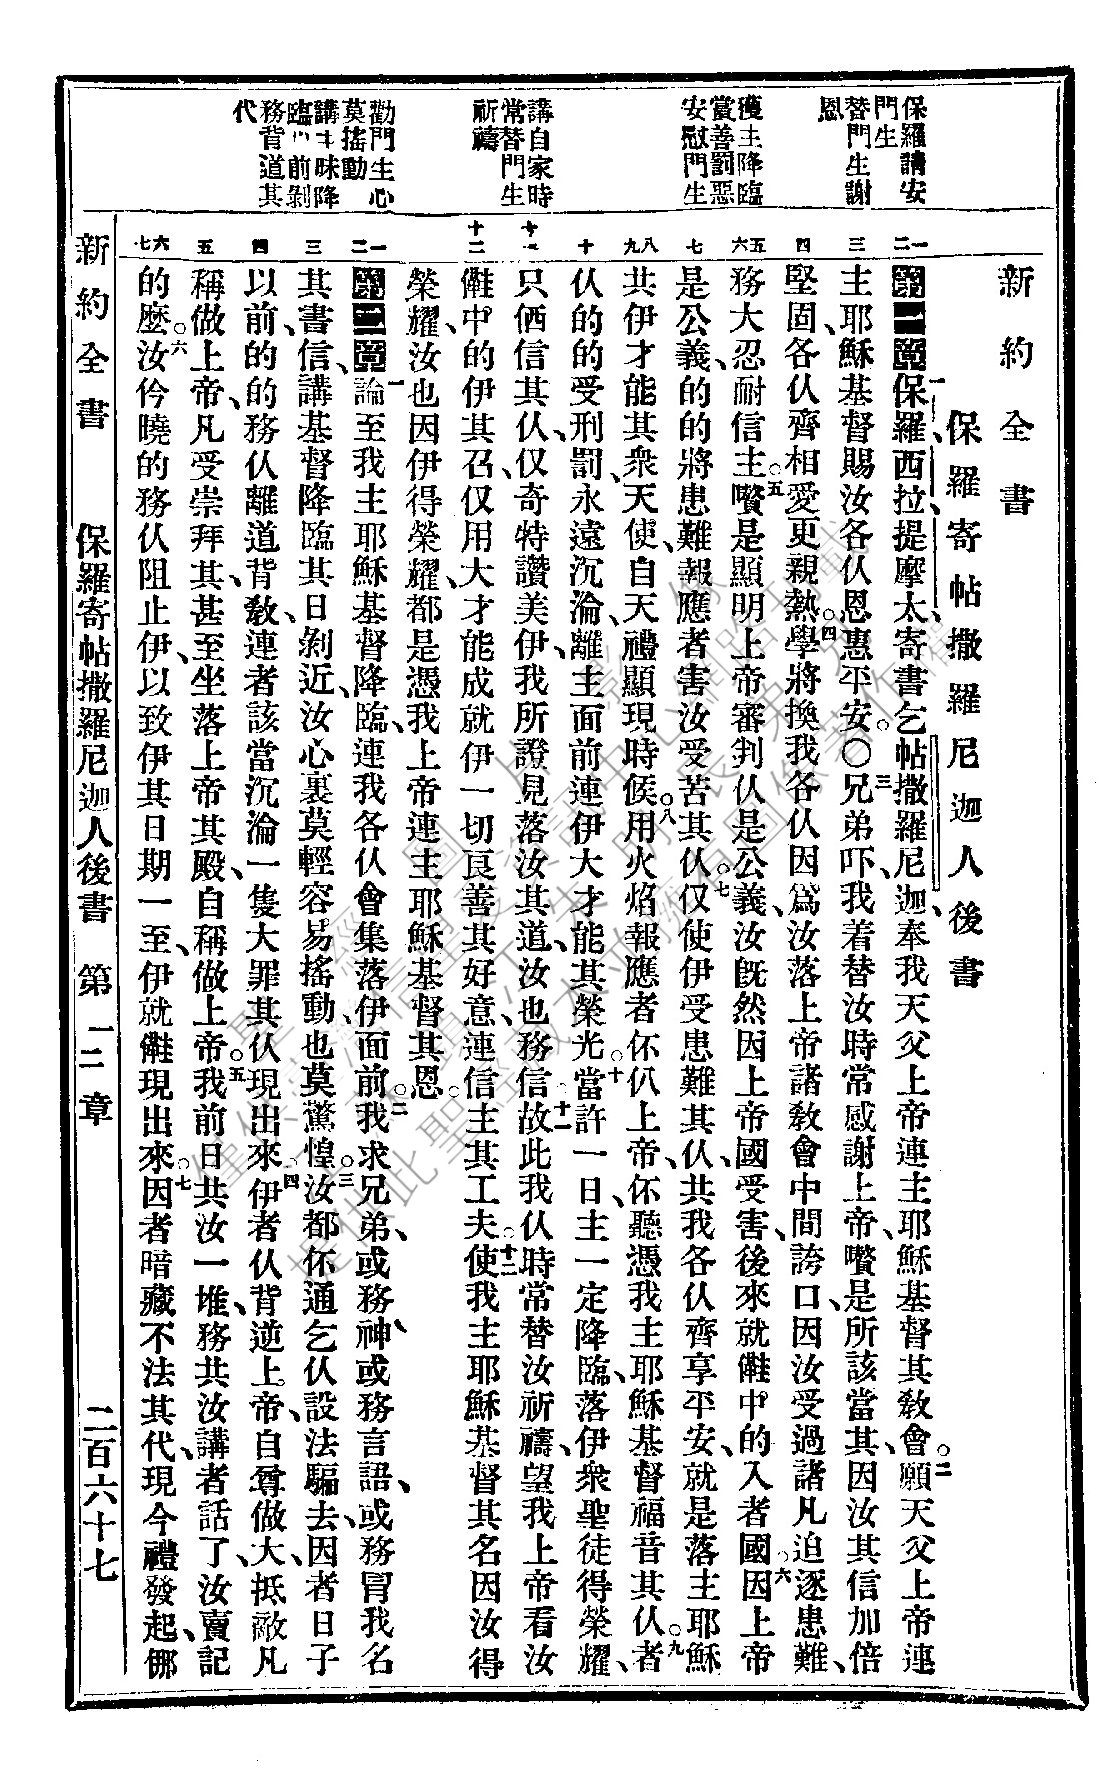 新約全書
保羅寄帖撒羅尼迦人後書
保羅請安
門生
替門生謝
恩
獲主降臨
賞善罰惡
安慰門生
講自家時
常替門生
祈禱
勸門生心
莫搖動
講主未降
臨以前剝
務背道其
代
一二
三
四
五六
七
八九
十
十一
十二
一二
三
四
五
六七
第一章一保羅西拉、提摩太寄書乞帖撒羅尼迦、奉我天父上帝連主、耶穌基督其教會。二願天父上帝連
主、耶穌基督賜汝各仈恩惠平安。〇三兄弟吓、我着替汝時常感謝上帝、嚽是所該當其、因汝其信加倍
堅固、各仈齊相愛更親熱。四學將換我各仈因爲汝落上帝諸教會中間誇口、因汝受過諸凡迫逐患難、
務大忍耐信主。五嚽是顯明上帝審判仈是公義、汝旣然因上帝國受害、後來就𣍐中的入者國。六因上帝
是公義、的的將患難報應者害汝受苦其仈。七仅使伊受患難其仈、共我各仈齊享平安、就是落主耶穌
共伊才能其衆天使、自天禮顯現時候。八用火焰報應者伓仈上帝、伓聽憑我主、耶穌基督福音其仈。九者
仈的的受刑罰、永遠沉淪、離主面前連伊大才能其榮光。十當許一日、主一定降臨、落伊衆聖徒得榮耀、
只倆信其仈、仅奇特讚美伊、我所證見落汝其道、汝也務信。十一故此我仈時常替汝祈禱、望我上帝看汝
中的伊其召、仅用大才能成就伊一切良善其好意、連信主其工夫。十二使我主耶穌基督其名因汝得
榮耀、汝也因伊得榮耀、都是憑我上帝連主耶穌基督其恩。
第二章一論至我主耶穌基督降臨、連我各仈會集落伊面前。二我求兄弟、或務神、或務言語、或務冒我名
其書信、講基督降臨其日剝近、汝心裏莫輕容易搖動、也莫驚惶。三汝都伓通乞仈設法騙去、因者日子
以前、的的務仈離道背教、連者該當沉淪一隻大罪其仈現出來。四伊者仈背逆上帝、自尊做大、抵敵凡
稱做上帝、凡受崇拜其、甚至坐落上帝其殿、自稱做上帝。五我前日共汝一堆、務共汝講者話了、汝賣記
的麼。六汝仱曉的務仈阻止伊、以致伊其日期一至、伊就𣍐現出來。七因者暗藏不法其代、現今禮發起、㑚
新約全書　保羅寄帖撒羅尼迦人後書　第一二章　二百六十七